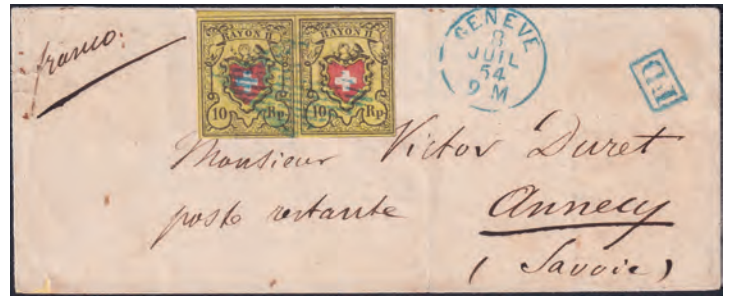 franco.
RAYON II RAYON II
10 Rp. 10 Rp.
GENÈVE
8
JUIL
54
9 M
PD
Monsieur Victor Duret
poste restante Annecy
(Savoie)